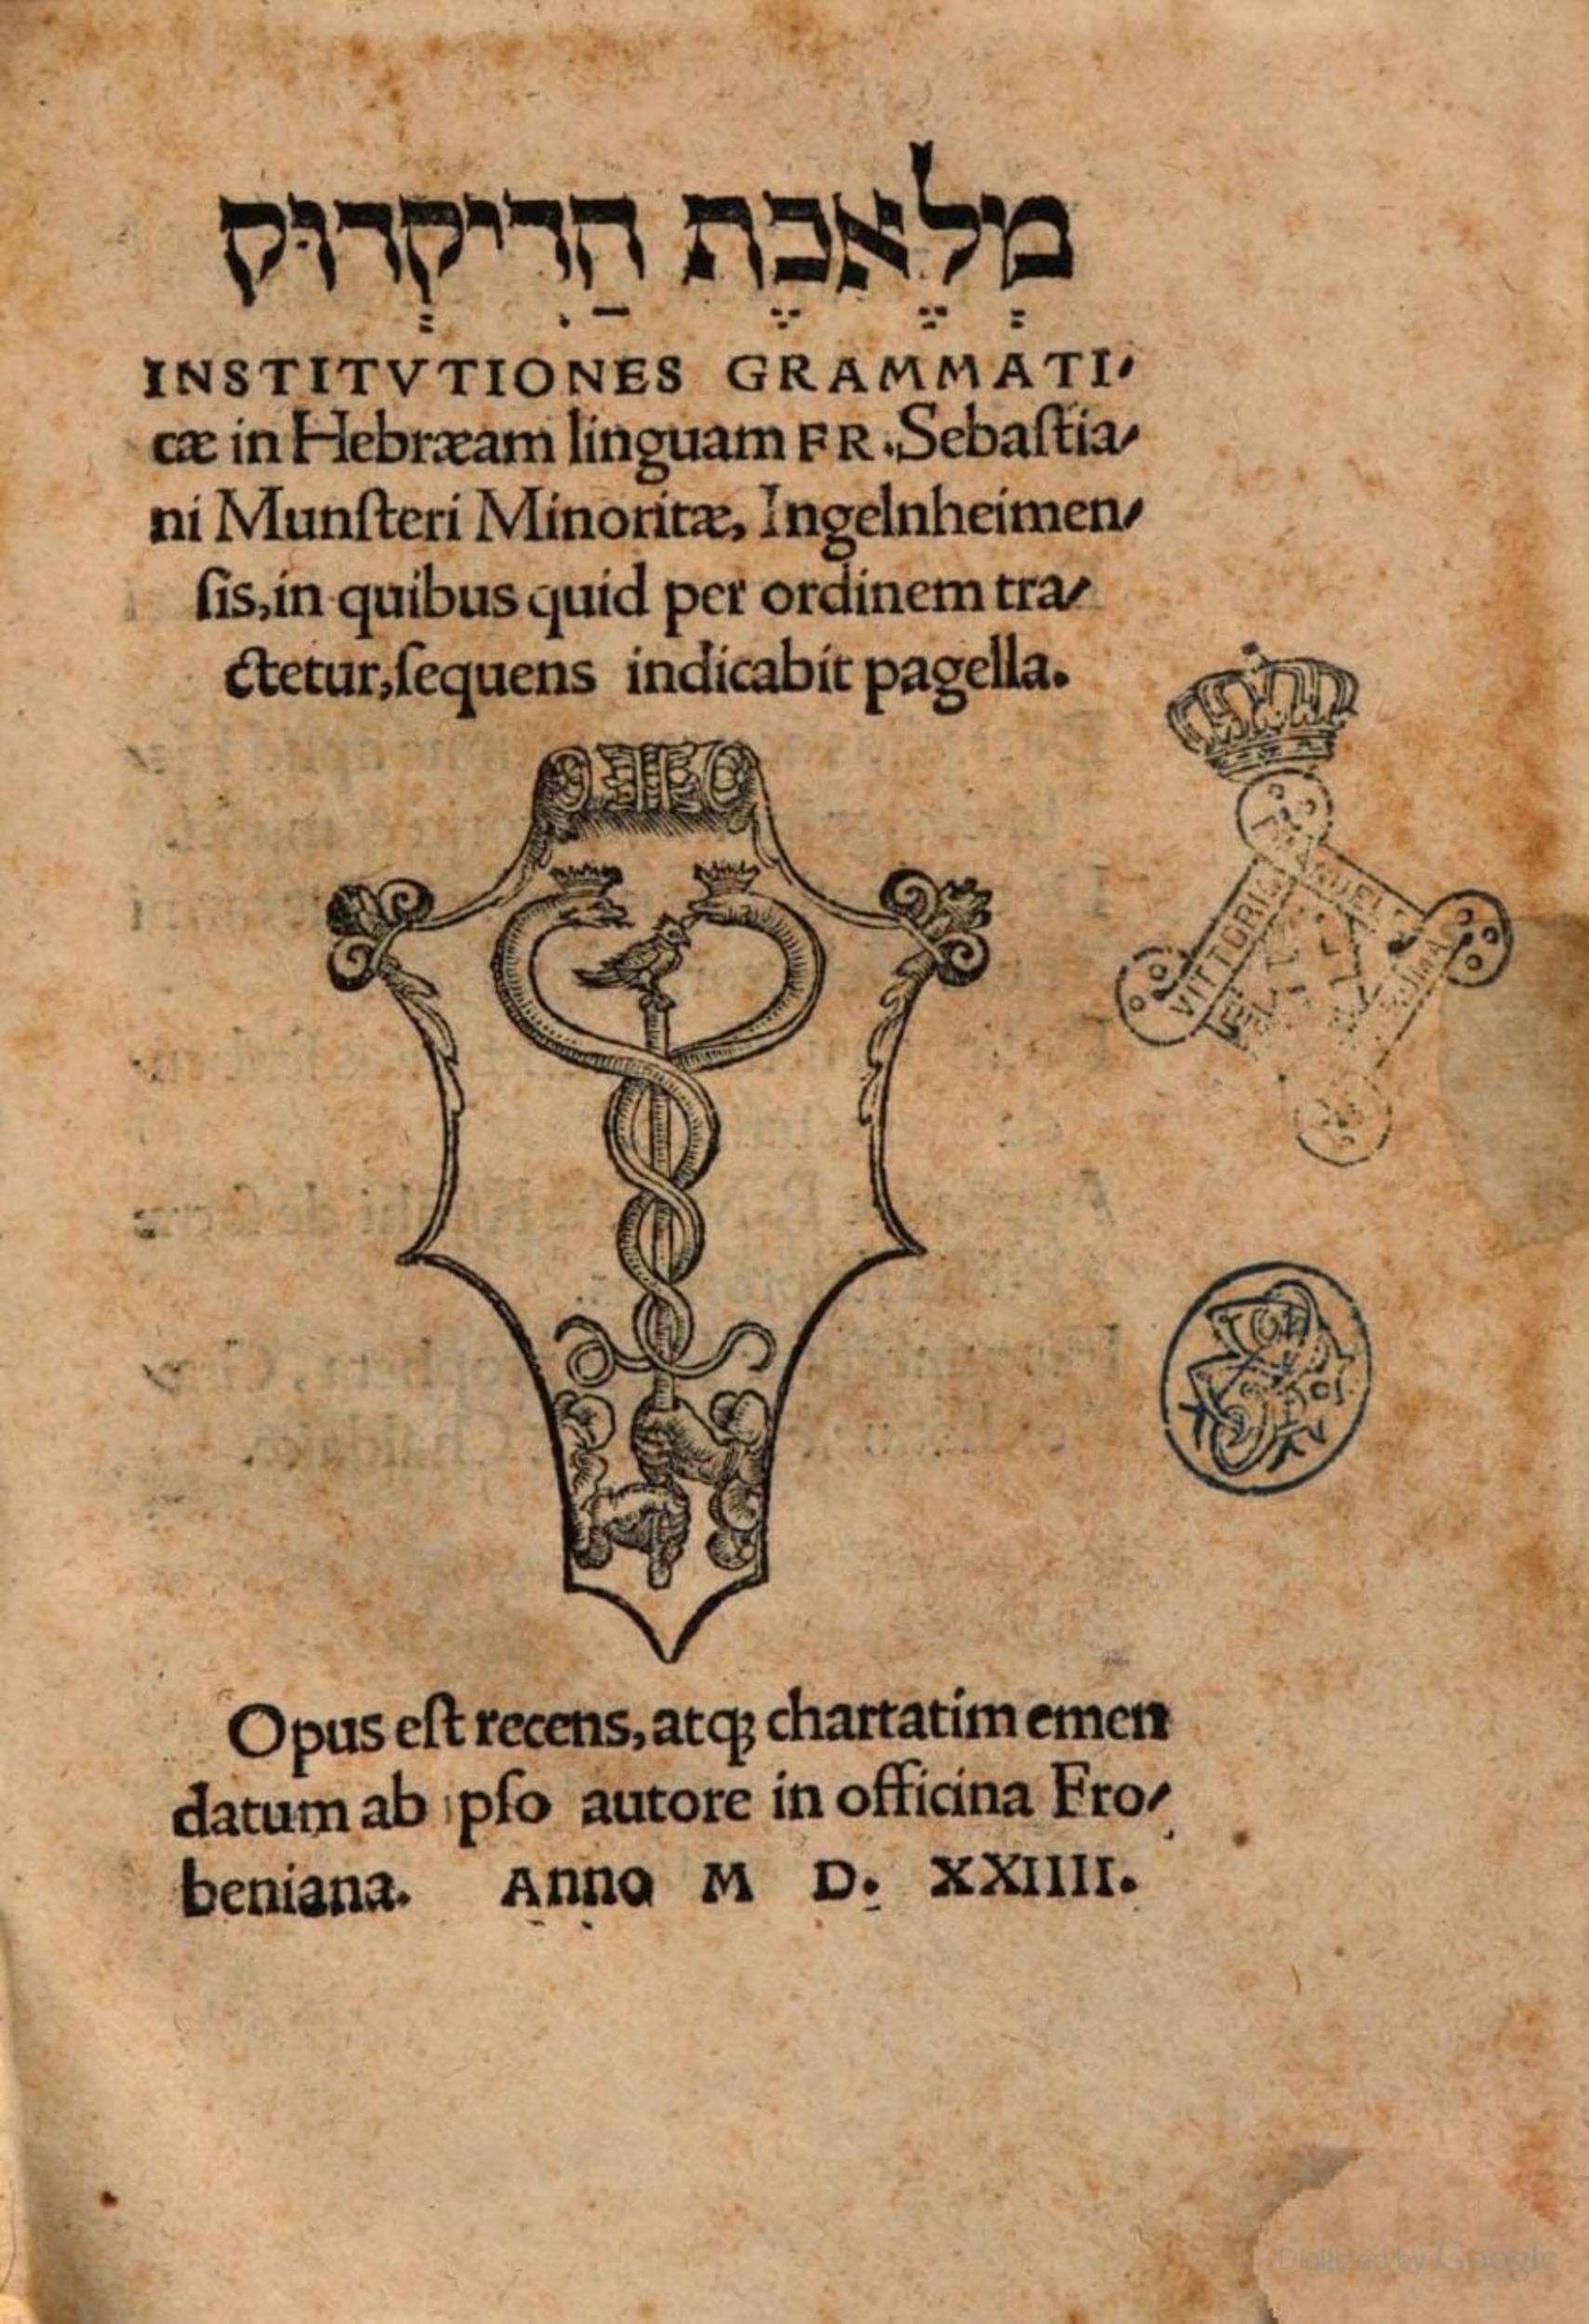 מְלֶאכֶת הַדִיקְדוּק
INSTITVTIONES GRAMMATI⸗
cæ in Hebræam linguam FR. Sebaſtia⸗
ni Munſteri Minoritæ, Ingelnheimen⸗
ſis, in quibus quid per ordinem tra⸗
ctetur, ſequens indicabit pagella.
VITTORIO
ROMA
Opus eſt recens, atq; chartatim emen
datum ab ipſo autore in officina Fro⸗
beniana. Anno M D. XXIIII.
Digitized by Google